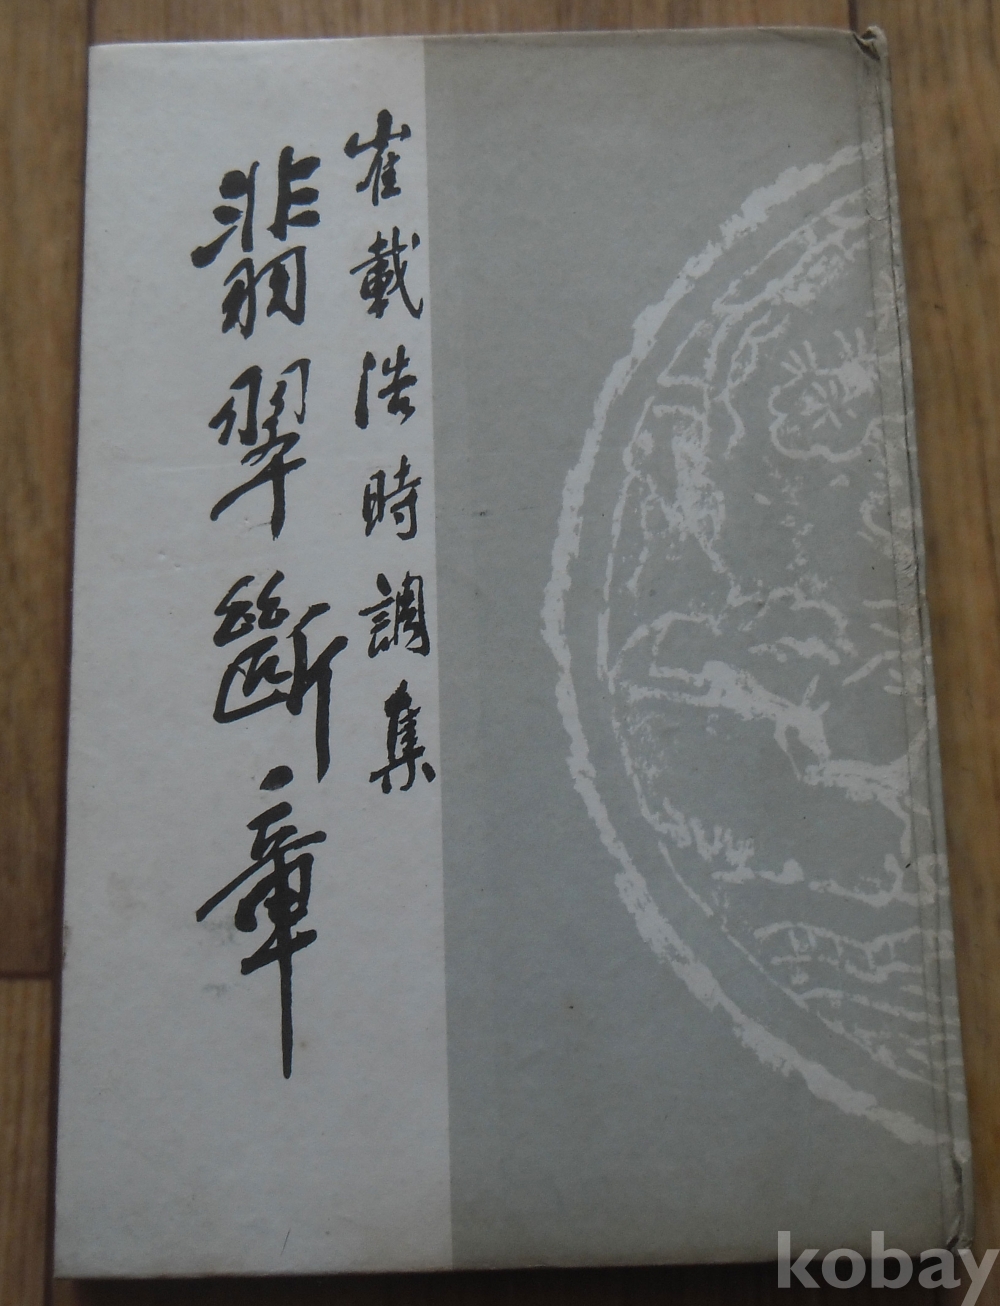 崔載浩時調集
翡翠斷章
kobay